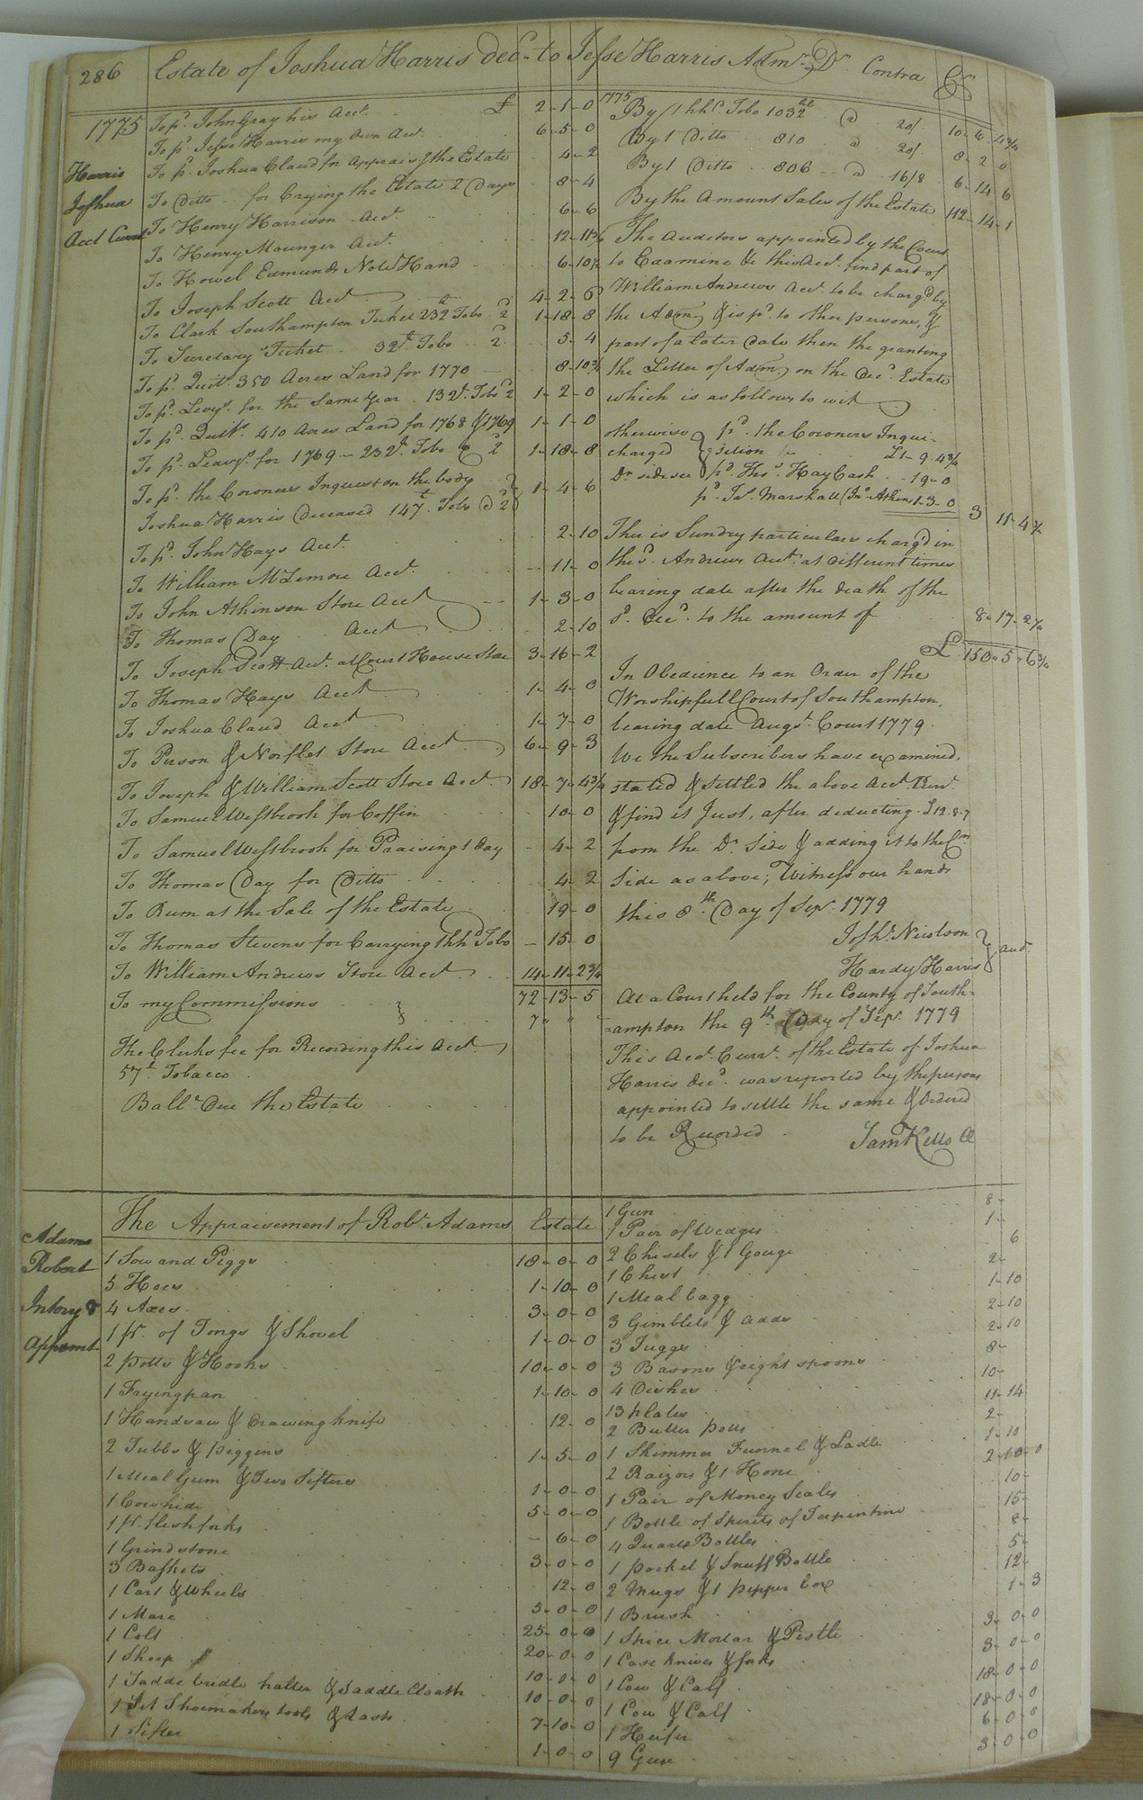 286 Estate of Joshua Harris Dec.d to Jesse Harris Adm.r Dr. Contra Cr.
1775
Harris
Joshua
Acct Curnt
To pd. John Gray his Acct. £ 2-1-0
To pd. Jesse Harris my own Acct. 6-5-0
To pd. Joshua Claud for Apprais.g the Estate 4-2
To Ditto for Crying the Estate 2 Days 8-4
To Henry Harrison Acct. 6-6
To Henry Mounger Acct. 12-11¾
To Howel Edmunds Note Hand 6-10½
To Joseph Scott Acct 4-2-6
To Clerk Southampton Ticket 232 lt Tobo. 2d 1-18-8
To Secretarys Ticket 32 lt Tobo 2d 5-4
To pd. Quit.s 350 Acres Land for 1770 8-10½
To pd. Levys. for the Same Year 132 lt. Tobo 2d 1-2-0
To pd. Quits. 410 Acres Land for 1768 & 1769 1-1-0
To pd. Leavys. for 1769 - 232 lt. Tobo @ 2d 1-18-8
To pd. the Coroners Inquest on the body
Joshua Harris Deceased 147 lt. Tobo @ 2d 1-4-6
To pd. John Hays Acct. 2-10
To William McLemore Acct. 11-0
To John Atkinson Store Acct 1-3-0
To Thomas Day Acct 2-10
To Joseph Scott Acct. at Court House Store 3-16-2
To Thomas Hays Acct 1-4-0
To Joshua Claud Acct 1-7-0
To Pison & Norflet Store Acct. 6-9-3
To Joseph & William Scott Store Acct. 18-7-4¾
To Samuel Westbrook for Coffin 10-0
To Samuel Westbrook for Praising 1 Day 4-2
To Thomas Day for Ditto 4-2
To Rum at the Sale of the Estate 19-0
To Thomas Stevens for Carrying 1 hhd Tobo 15-0
To William Andrews Store Acct 14-11-2¾
72-13-5
To my Commissions 7 " "
The Clerks fee for Recording this Acct.
57 lt. Tobacco
Ball.e Due the Estate
1775 By 1 hhd. Tobo 1032 lt @ 20/ 10-6-4¾
By 1 Ditto 810 @ 20/ 8-2-0
By 1 Ditto 806 @ 16/8 6-14-6
By the Amount Sales of the Estate 112-14-1
The Auditors appointed by the Court
to Examine &c this Acct. find part of
William Andrews Acct. to be charg'd by
the Adm.r & is pd. to other persons, &
part of a later Date then the granting
the Letter of Adm.n on the Dec.d Estate
which is as follows to wit
otherwise pd. the Coroners Inqui-
charged sition £1-9-4¾
Dr side see pd. Thos. Hay Cash 19-0
pd. Jas. Marshall (Jno. Atkins 1-3-0 3 11-4¾
Ther is Sundry particulars charg'd in
the sd. Andrews Acct. at different times
bearing date after the death of the
sd. Dec.d to the amount of 8-17-2¼
£ 150-5-6¾
In Obedience to an Order of the
Worshipfull Court of Southampton,
bearing date Augst. Court 1779.
We the Subscribers have examined,
stated & settled the above Acct. Curr.t
& find it Just, after deducting £12.8.7
from the Dr. Side & adding it to the Cr.
Side as above; Witness our hands
this 8th. Day of Sepr. 1779
Josh. Nicolson
Hardy Harris
aud.
At a Court held for the County of South-
ampton the 9th. Day of Sepr. 1779
This Acct. Curr.t. of the Estate of Joshua
Harris Dec.d was reported by the persons
appointed to settle the same & Ordered
to be Recorded
Sam Kello Cl
Adams
Robert
Intory &
Appmt
The Appraisement of Robt. Adams Estate
1 Sow and Piggs 18-0-0
5 Hoes 1-10-0
4 Axes 3-0-0
1 pr. of Tongs & Shovel 1-0-0
2 potts & Hooks 10-0-0
1 Fryingpan 1-10-0
1 Handsaw & Drawing knife 12-0
2 Tubbs & piggins 1-5-0
1 Meal Gum & Two Sifters 1-0-0
1 Cowhide 5-0-0
1 pr. fleshforks - 6-0
1 Grindstone 3-0-0
3 Baskets 12-0
1 Cart & Wheels 5-0-0
1 Mare 25-0-0
1 Colt 20-0-0
1 Sheep 10-0-0
1 Saddle bridle halter & Saddle Cloath 10-0-0
1 Set Shoemakers tools & Lasts 7-10-0
1 Sifter 1-0-0
1 Gun 8-
1 Pair of Wedges 1-
2 Chisels & 1 Gouge 6
1 Chest 2-
1 Meal bagg 1-10
3 Gimblets & adds 2-10
3 Juggs 2-10
3 Basons & eight spoons 8-
4 Dishes 10-
13 plates 11-14
2 Butter potts 2-
1 Skimmer Funnel & Ladle 1-10
2 Raizors & 1 Hone 2-10-0
1 Pair of Money Scales 10-
1 Bottle of Spirits of Turpentine 15-
4 Quart Bottles 8-
1 pocket & Snuff Bottle 5-
2 Mugs & 1 pepper box 12-
1 Brush 1-3
1 Spice Mortar & Pestle 3-0-0
1 Case knives & forks 3-0-0
1 Cow & Calf 18-0-0
1 Cow & Calf 18-0-0
1 Heifer 6-0-0
9 Geese 3-0-0